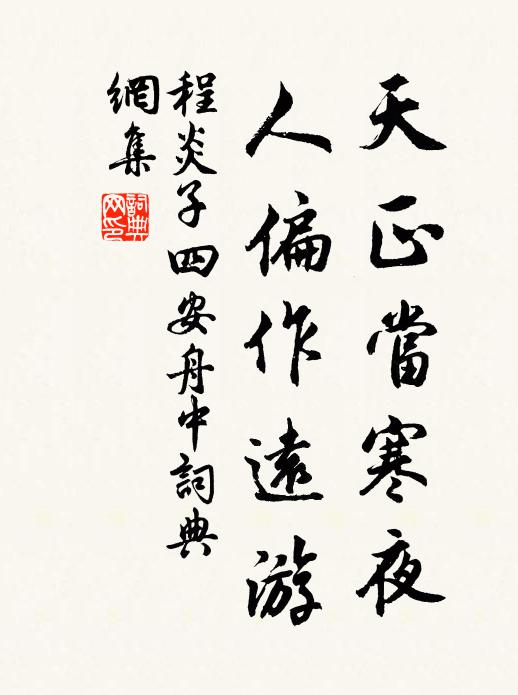 天正當寒夜
人偏作遠游
程炎子四安舟中詞典
網集
詞典
网印